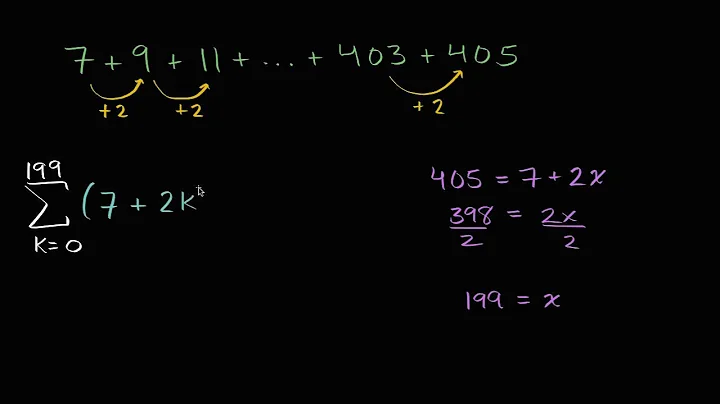 7 + 9 + 11 + ... + 403 + 405
+2 +2 +2
199
Σ (7 + 2K
K = 0
405 = 7 + 2x
398 = 2x
2 2
199 = x